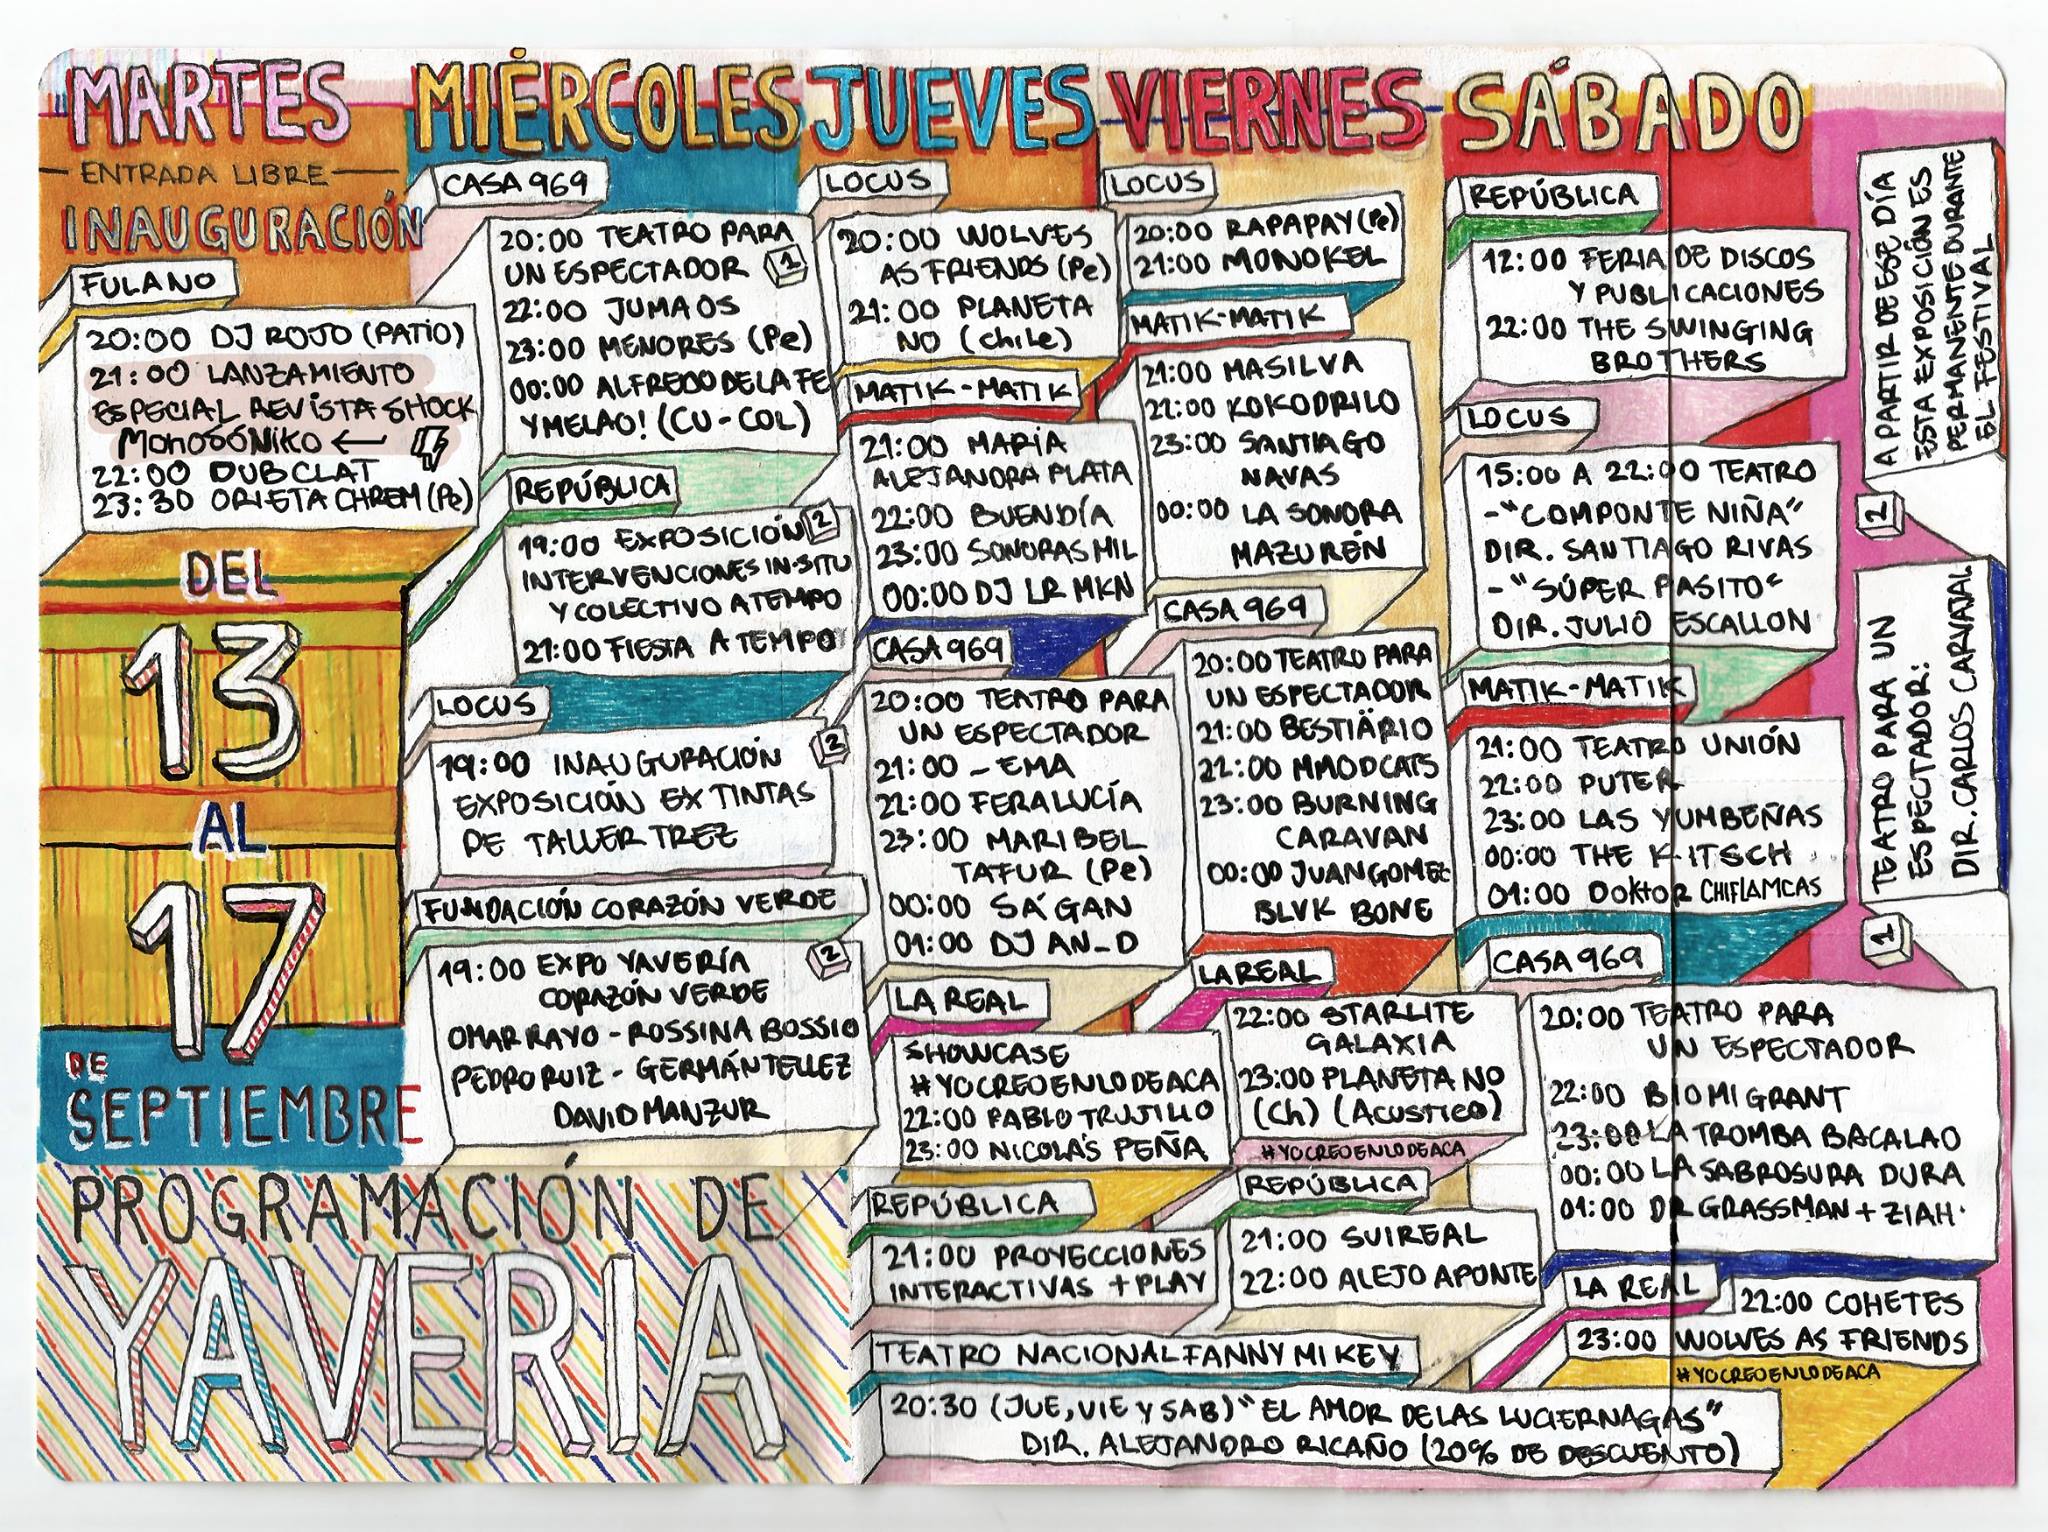 MARTES
ENTRADA LIBRE
INAUGURACIÓN
FULANO
20:00 DJ ROJO (PATIO)
21:00 LANZAMIENTO
ESPECIAL REVISTA SHOCK
MONOSÓNIKO ←
22:00 DUB CLAT
23:30 ORIETA CHREM (Pe)
DEL
13
AL
17
DE
SEPTIEMBRE
PROGRAMACIÓN DE
YAVERIA
MIÉRCOLES
CASA 969
20:00 TEATRO PARA
UN ESPECTADOR 1
22:00 JUMAOS
23:00 MENORES (Pe)
00:00 ALFREDO DE LA FE
Y MELAO! (CU-COL)
REPÚBLICA
19:00 EXPOSICIÓN 2
INTERVENCIONES IN-SITU
Y COLECTIVO A TEMPO
21:00 FIESTA A TEMPO
LOCUS
2
19:00 INAUGURACIÓN
EXPOSICIÓN EX TINTAS
DE TALLER TREZ
FUNDACIÓN CORAZÓN VERDE
19:00 EXPO YAVERÍA 2
CORAZÓN VERDE
OMAR RAYO - ROSSINA BOSSIO
PEDRO RUIZ - GERMÁN TELLEZ
DAVID MANZUR
JUEVES
LOCUS
20:00 WOLVES
AS FRIENDS (Pe)
21:00 PLANETA
NO (chile)
MATIK-MATIK
21:00 MARÍA
ALEJANDRA PLATA
22:00 BUENDÍA
23:00 SONORAS MIL
00:00 DJ LR MKN
CASA 969
20:00 TEATRO PARA
UN ESPECTADOR
21:00 _EMA
22:00 FERALUCÍA
23:00 MARIBEL
TAFUR (Pe)
00:00 SÁGAN
01:00 DJ AN_D
LA REAL
SHOWCASE
#YOCREOENLODEACA
22:00 PABLO TRUJILLO
23:00 NICOLÁS PEÑA
REPÚBLICA
21:00 PROYECCIONES
INTERACTIVAS + PLAY
TEATRO NACIONAL FANNY MIKEY
20:30 (JUE, VIE Y SAB) "EL AMOR DE LAS LUCIERNAGAS"
DIR. ALEJANDRO RICAÑO (20% DE DESCUENTO)
VIERNES
LOCUS
20:00 RAPAPAY (Pe)
21:00 MONOKEL
MATIK-MATIK
21:00 MASILVA
22:00 KOKODRILO
23:00 SANTIAGO
NAVAS
00:00 LA SONORA
MAZURÉN
CASA 969
20:00 TEATRO PARA
UN ESPECTADOR
21:00 BESTIÄRIO
22:00 MMODCATS
23:00 BURNING
CARAVAN
00:00 JUANGOMEZ
BLVK BONE
LA REAL
22:00 STARLITE
GALAXIA
23:00 PLANETA NO
(Ch) (Acustico)
#YOCREOENLODEACA
REPÚBLICA
21:00 SUIREAL
22:00 ALEJO APONTE
SÁBADO
REPÚBLICA
12:00 FERIA DE DISCOS
Y PUBLICACIONES
22:00 THE SWINGING
BROTHERS
LOCUS
15:00 A 22:00 TEATRO
-"COMPONTE NIÑA"
DIR. SANTIAGO RIVAS
-"SÚPER PASITO"
DIR. JULIO ESCALLON
MATIK-MATIK
21:00 TEATRO UNIÓN
22:00 PUTER
23:00 LAS YUMBEÑAS
00:00 THE KITSCH
01:00 DOKTOR CHIFLAMCAS
CASA 969
20:00 TEATRO PARA
UN ESPECTADOR
22:00 BIOMIGRANT
23:00 LA TROMBA BACALAO
00:00 LA SABROSURA DURA
01:00 DR GRASSMAN + ZIAH.
LA REAL
22:00 COHETES
23:00 WOLVES AS FRIENDS
#YOCREOENLODEACA
A PARTIR DE ESE DÍA
ESTA EXPOSICIÓN ES
PERMANENTE DURANTE
EL FESTIVAL
2
TEATRO PARA UN
ESPECTADOR:
DIR. CARLOS CARVAJAL
1